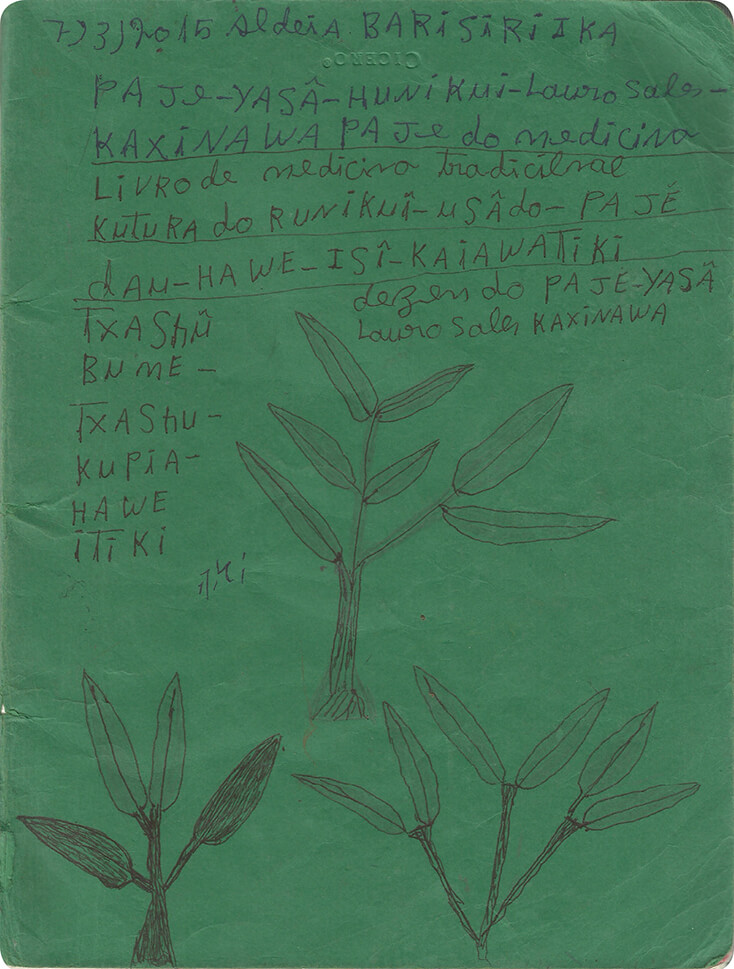 7)3)2015 Aldeia BARISIRIIKA
CICERO
PAJe-YASÂ-HUNiKUi-Lauro Sales-
KAXiNAWA PAJe do medicina
LiVRO de medicina tradicilnae
KUTURA do RUNiKUî-USÂdO-PAJÉ
dAU-HAWE-ISÎ-KAiAWATiKi
dezen do PAJE-YASÂ
Lauro Sales KAXiNAWA
TXAShÛ
BUNE-
TXAShU-
KUPiA-
HAWE
ÎTiKi